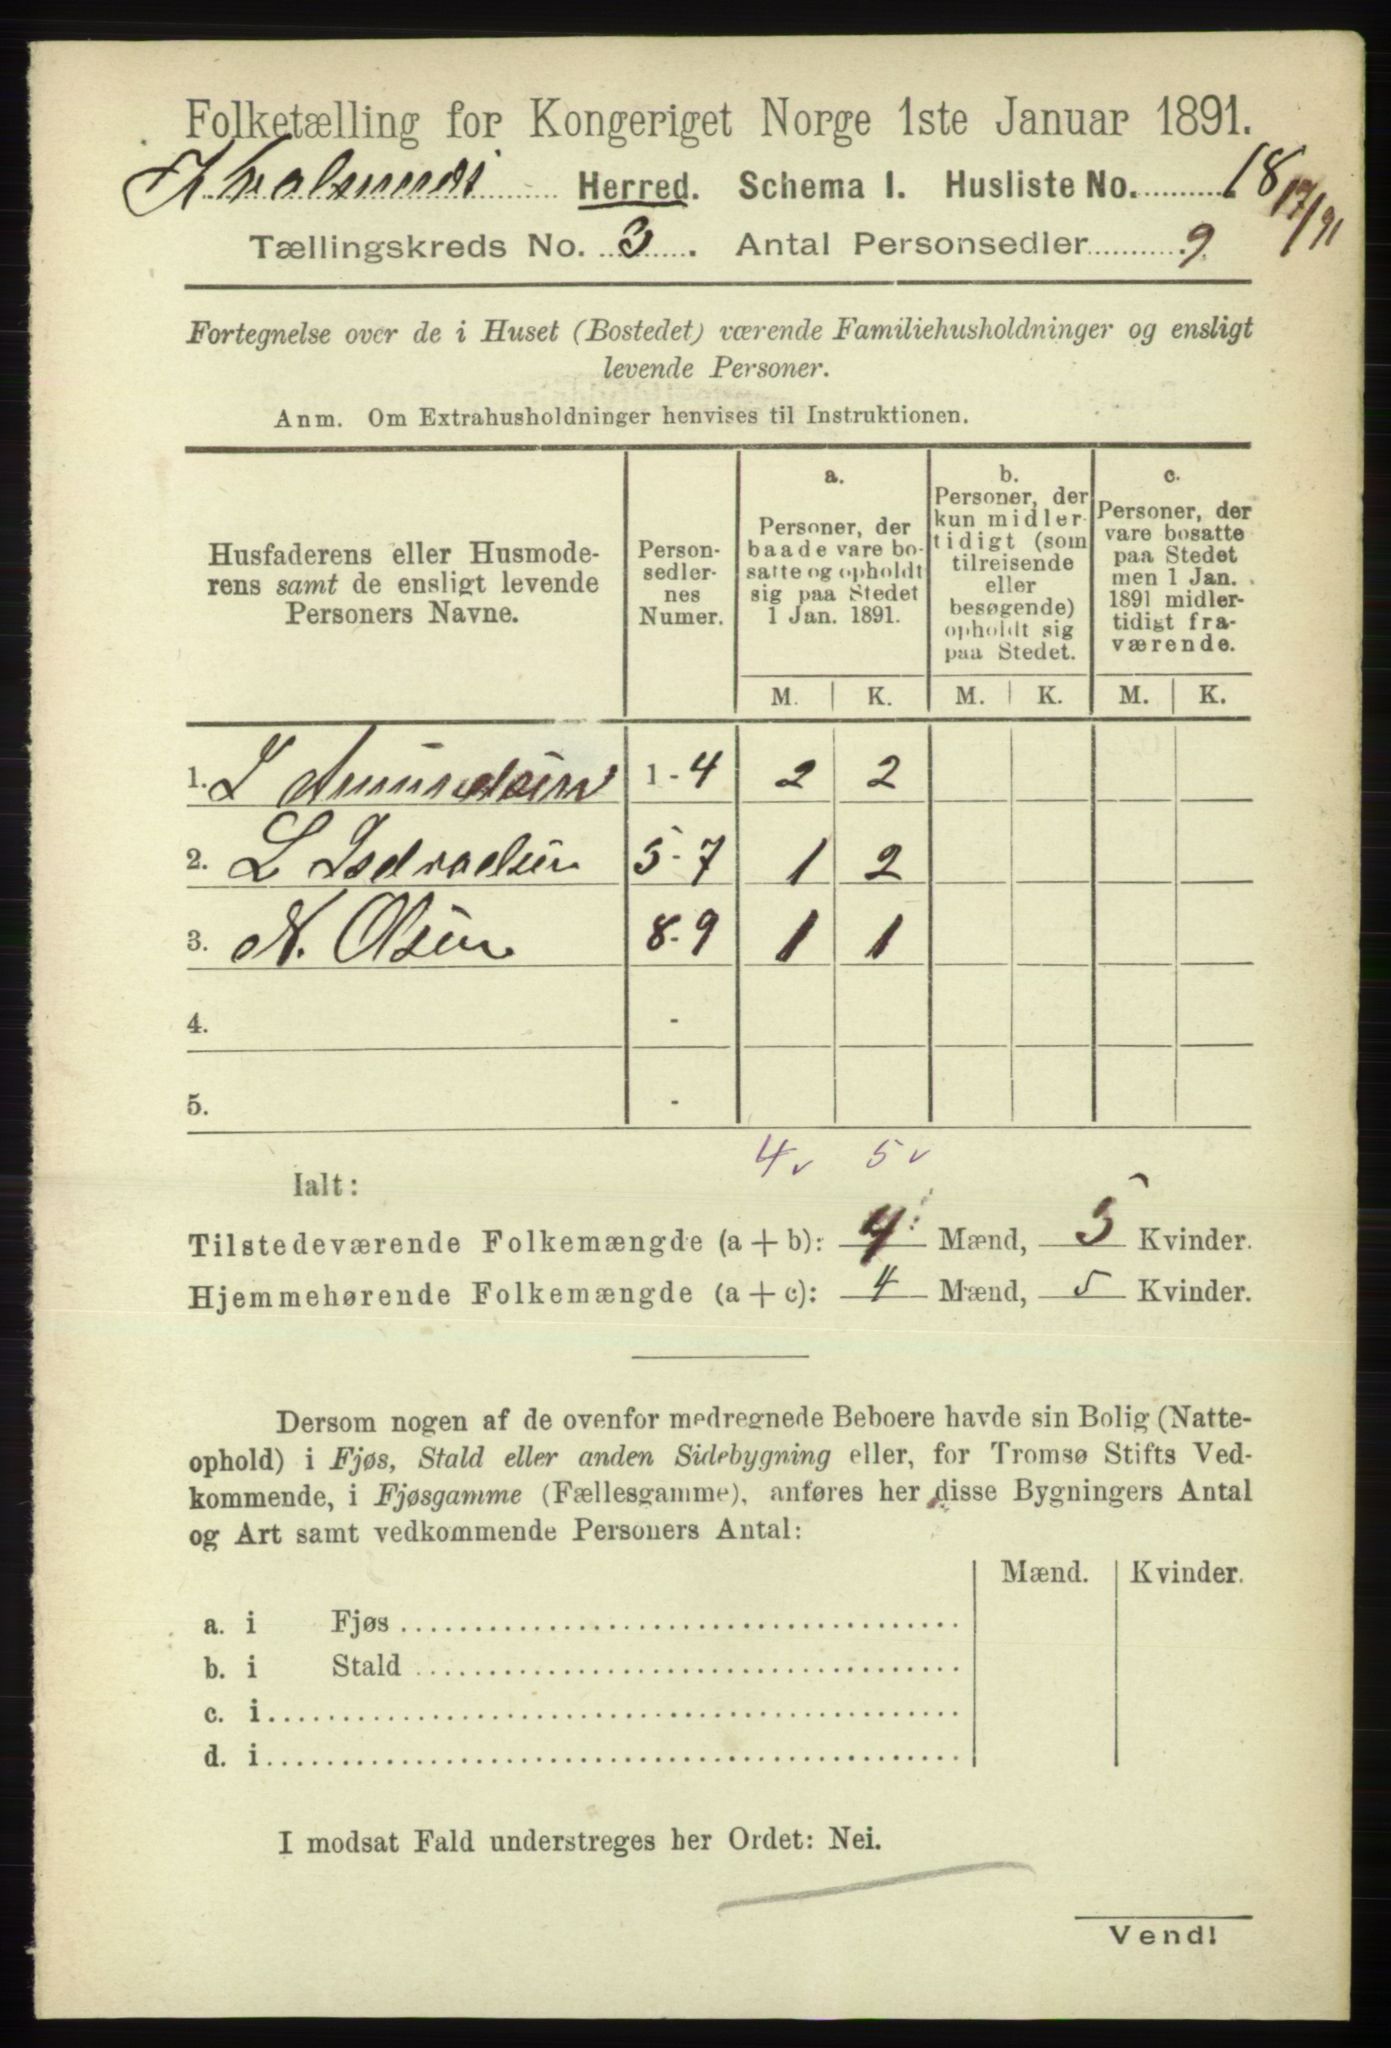 Folketælling for Kongeriget Norge 1ste Januar 1891.
Kvalsunds Herred. Schema I. Husliste No. 18 17/91
Tællingskreds No. 3. Antal Personsedler 9
Fortegnelse over de i Huset (Bostedet) værende Familiehusholdninger og ensligt
levende Personer.
Anm. Om Extrahusholdninger henvises til Instruktionen.
Husfaderens eller Husmode-
rens samt de ensligt levende
Personers Navne.
Person-
sedler-
nes
Numer.
a.
Personer, der
baade vare bo-
satte og opholdt
sig paa Stedet
1 Jan. 1891.
b.
Personer, der
kun midler-
tidigt (som
tilreisende
eller
besøgende)
opholdt sig
paa Stedet.
c.
Personer, der
vare bosatte
paa Stedet
men 1 Jan.
1891 midler-
tidigt fra-
værende.
M. K. M. K. M. K.
1. L Amundsen 1-4 2 2
2. L Isdraelsen 5-7 1 2
3. N. Olsen 8-9 1 1
4. -
5. -
4 v 5 v
Ialt:
Tilstedeværende Folkemængde (a + b): 4 Mænd, 5 Kvinder.
Hjemmehørende Folkemængde (a + c): 4 Mænd, 5 Kvinder.
Dersom nogen af de ovenfor medregnede Beboere havde sin Bolig (Natte-
ophold) i Fjøs, Stald eller anden Sidebygning eller, for Tromsø Stifts Ved-
kommende, i Fjøsgamme (Fællesgamme), anføres her disse Bygningers Antal
og Art samt vedkommende Personers Antal:
Mænd. Kvinder.
a. i Fjøs
b. i Stald
c. i
d. i
I modsat Fald understreges her Ordet: Nei.
Vend!